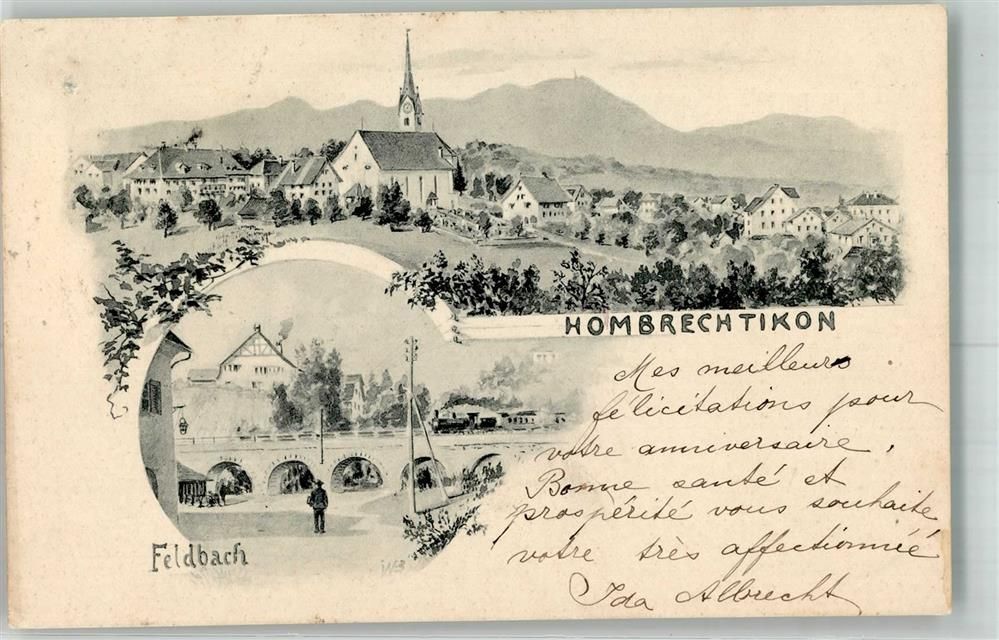 HOMBRECHTIKON
Mes meilleurs
félicitations pour
votre anniversaire,
Bonne santé et
prospérité vous souhaite
votre très affectionnée
Ida Albrecht
Feldbach